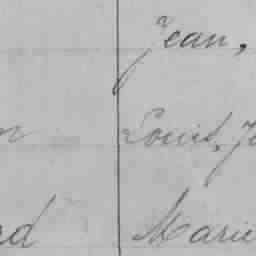 Jean,
Louis, J
Marie